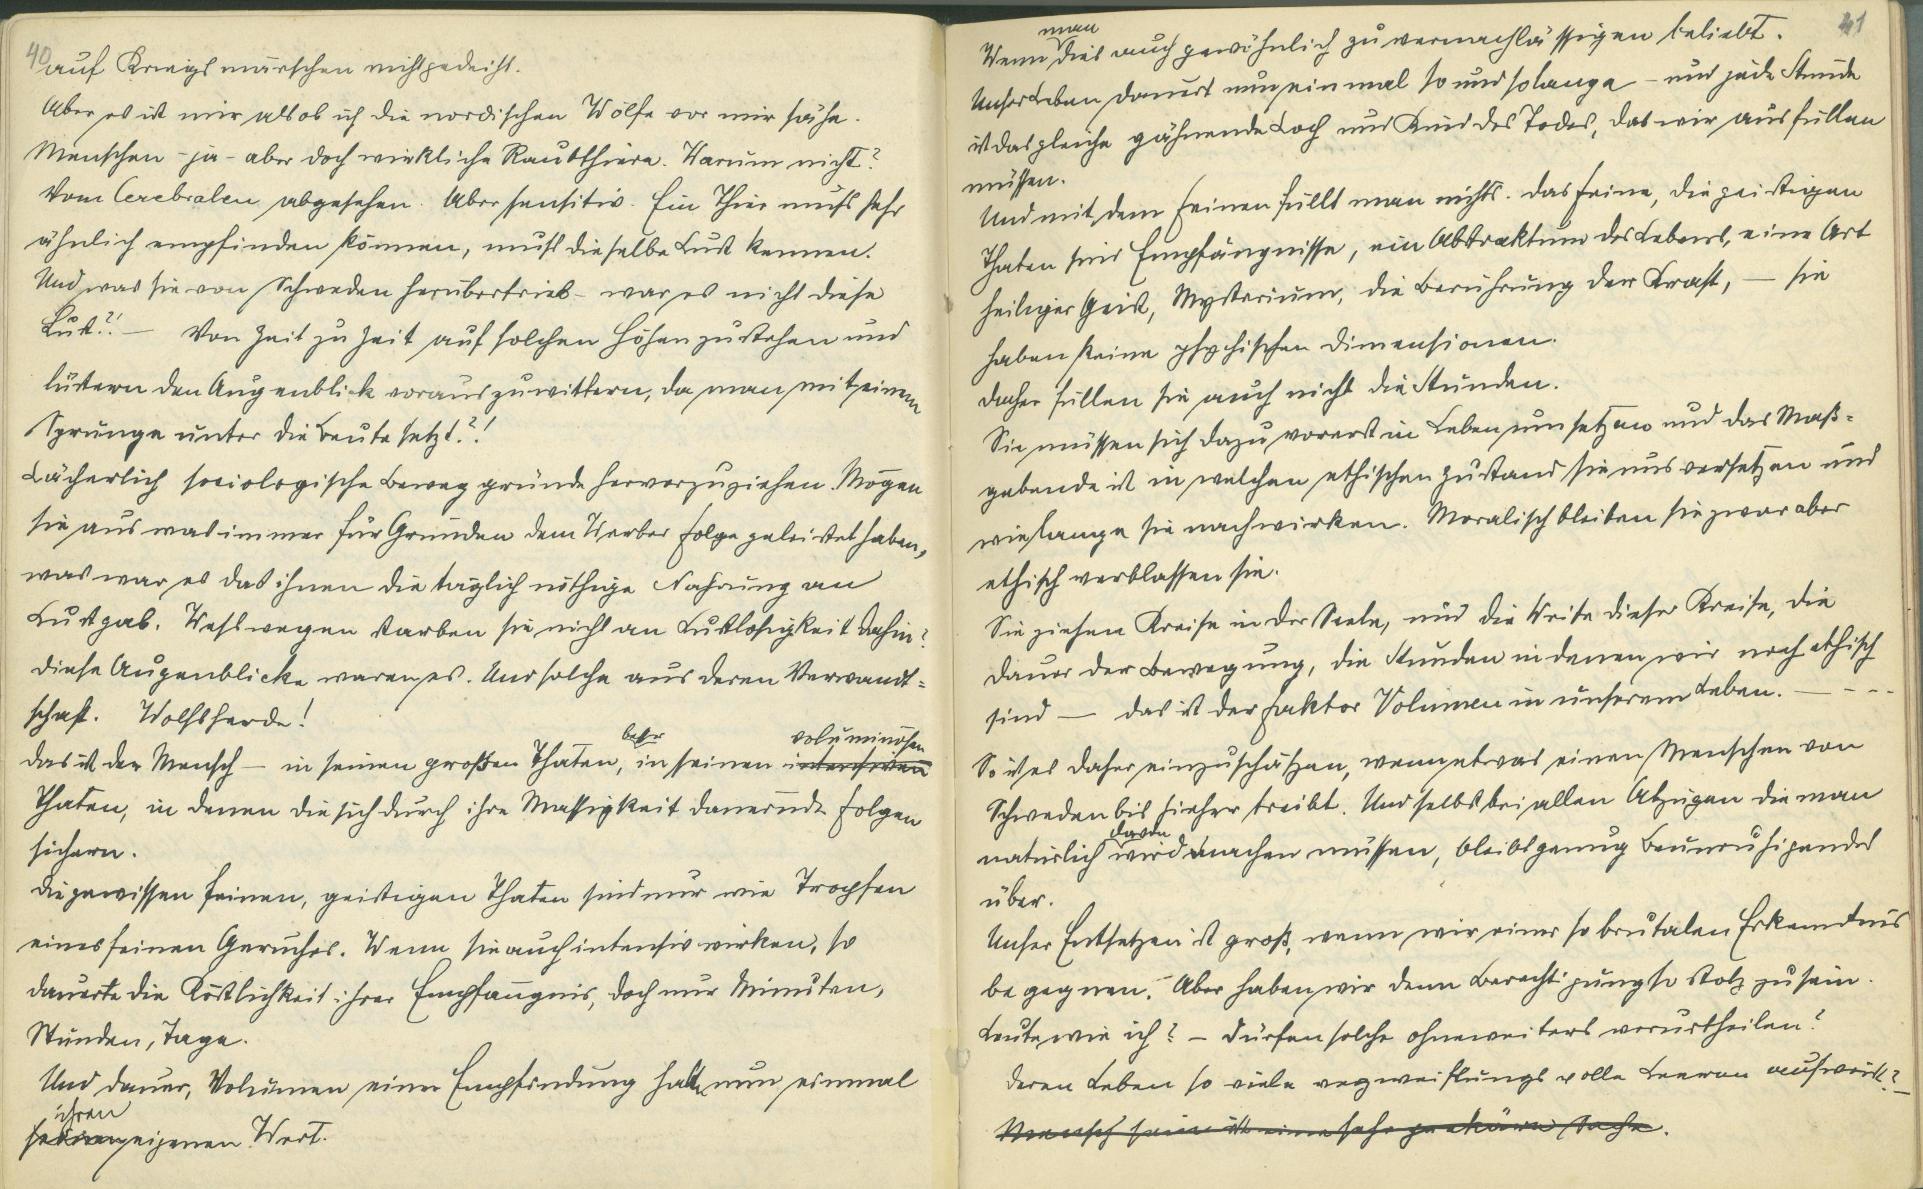 40
auf Kriegsmärschen nicht gedeiht.
Aber es ist mir als ob ich die nordischen Wölfe vor mir sähe.
Menschen – ja – aber doch wirkliche Raubthiere. Warum nicht?
Vom Cerebralen abgesehen. Aber sensitiv. Ein Thier muß sehr
ähnlich empfinden können, muß dieselbe Lust kennen.
Und was sie von Schweden herübertrieb – war es nicht diese
Lust?! — Von Zeit zu Zeit auf solchen Höhen zu stehen und
lüstern den Augenblick vorauszuwittern, da man mit einem
Sprunge unter die Beute setzt?!
Lächerlich sociologische Beweggründe hervorzuziehen. Mögen
sie aus was immer für Gründen dem Werber Folge geleistet haben,
was war es das ihnen die täglich nöthige Nahrung an
Lust gab. Weßwegen starben sie nicht an Lustlosigkeit dahin?
Diese Augenblicke waren es. Und solche aus deren Verwandt=
schaft. Wolfsherde!
Das ist der Mensch — in seinen großen Thaten, besser in seinen intensiven voluminösen
Thaten, in denen die sich durch ihre Massigkeit dauernde Folgen
sichern.
Die gewissen feinen, geistigen Thaten sind nur wie Tropfen
eines feinen Geruches. Wenn sie auch intensiv wirken, so
dauerte die Köstlichkeit ihrer Empfängnis, doch nur Minuten,
Stunden, Tage.
Und Dauer, Volumen einer Empfindung hat nun einmal
ihren
seinen eigenen Wert.
41
man
Wenn dies auch gewöhnlich zu vernachlässigen beliebt.
Unser Leben dauert nun einmal so und solange – und jede Stunde
ist das gleiche gähnende Loch und Kind des Todes, das wir ausfüllen
müssen.
Und mit dem Feinen füllt man nichts. Das Feine, die geistigen
Thaten sind Empfängnisse, ein Abstraktum des Lebens, eine Art
heiliger Geist, Mysterium, die Berührung der Kraft, — sie
haben keine psychischen Dimensionen.
Daher füllen sie auch nicht die Stunden.
Sie müssen sich dazu vorerst in Leben umsetzen und das Maß=
gebende ist in welchen ethischen Zustand sie uns versetzen und
wie lange sie nachwirken. Moralisch bleiben sie zwar aber
ethisch verblassen sie.
Sie ziehen Kreise in der Seele, und die Weite dieser Kreise, die
Dauer der Bewegung, die Stunden in denen wir noch ethisch
sind — das ist der Faktor Volumen in unserem Leben. — - - -
So ist es daher einzuschätzen, wenn etwas einen Menschen von
Schweden bis hieher treibt. Und selbst bei allen Abzügen die man
davon
natürlich wird machen müssen, bleibt genug Beunruhigendes
über.
Unser Entsetzen ist groß, wenn wir einer so brutalen Erkenntnis
begegnen. Aber haben wir denn Berechtigung so stolz zu sein.
Leute wie ich? – Dürfen solche ohneweiters verurtheilen?
deren Leben so viele verzweiflungsvolle Leeren aufweist? –
Mensch sein ist eine sehr prekäre Sache.